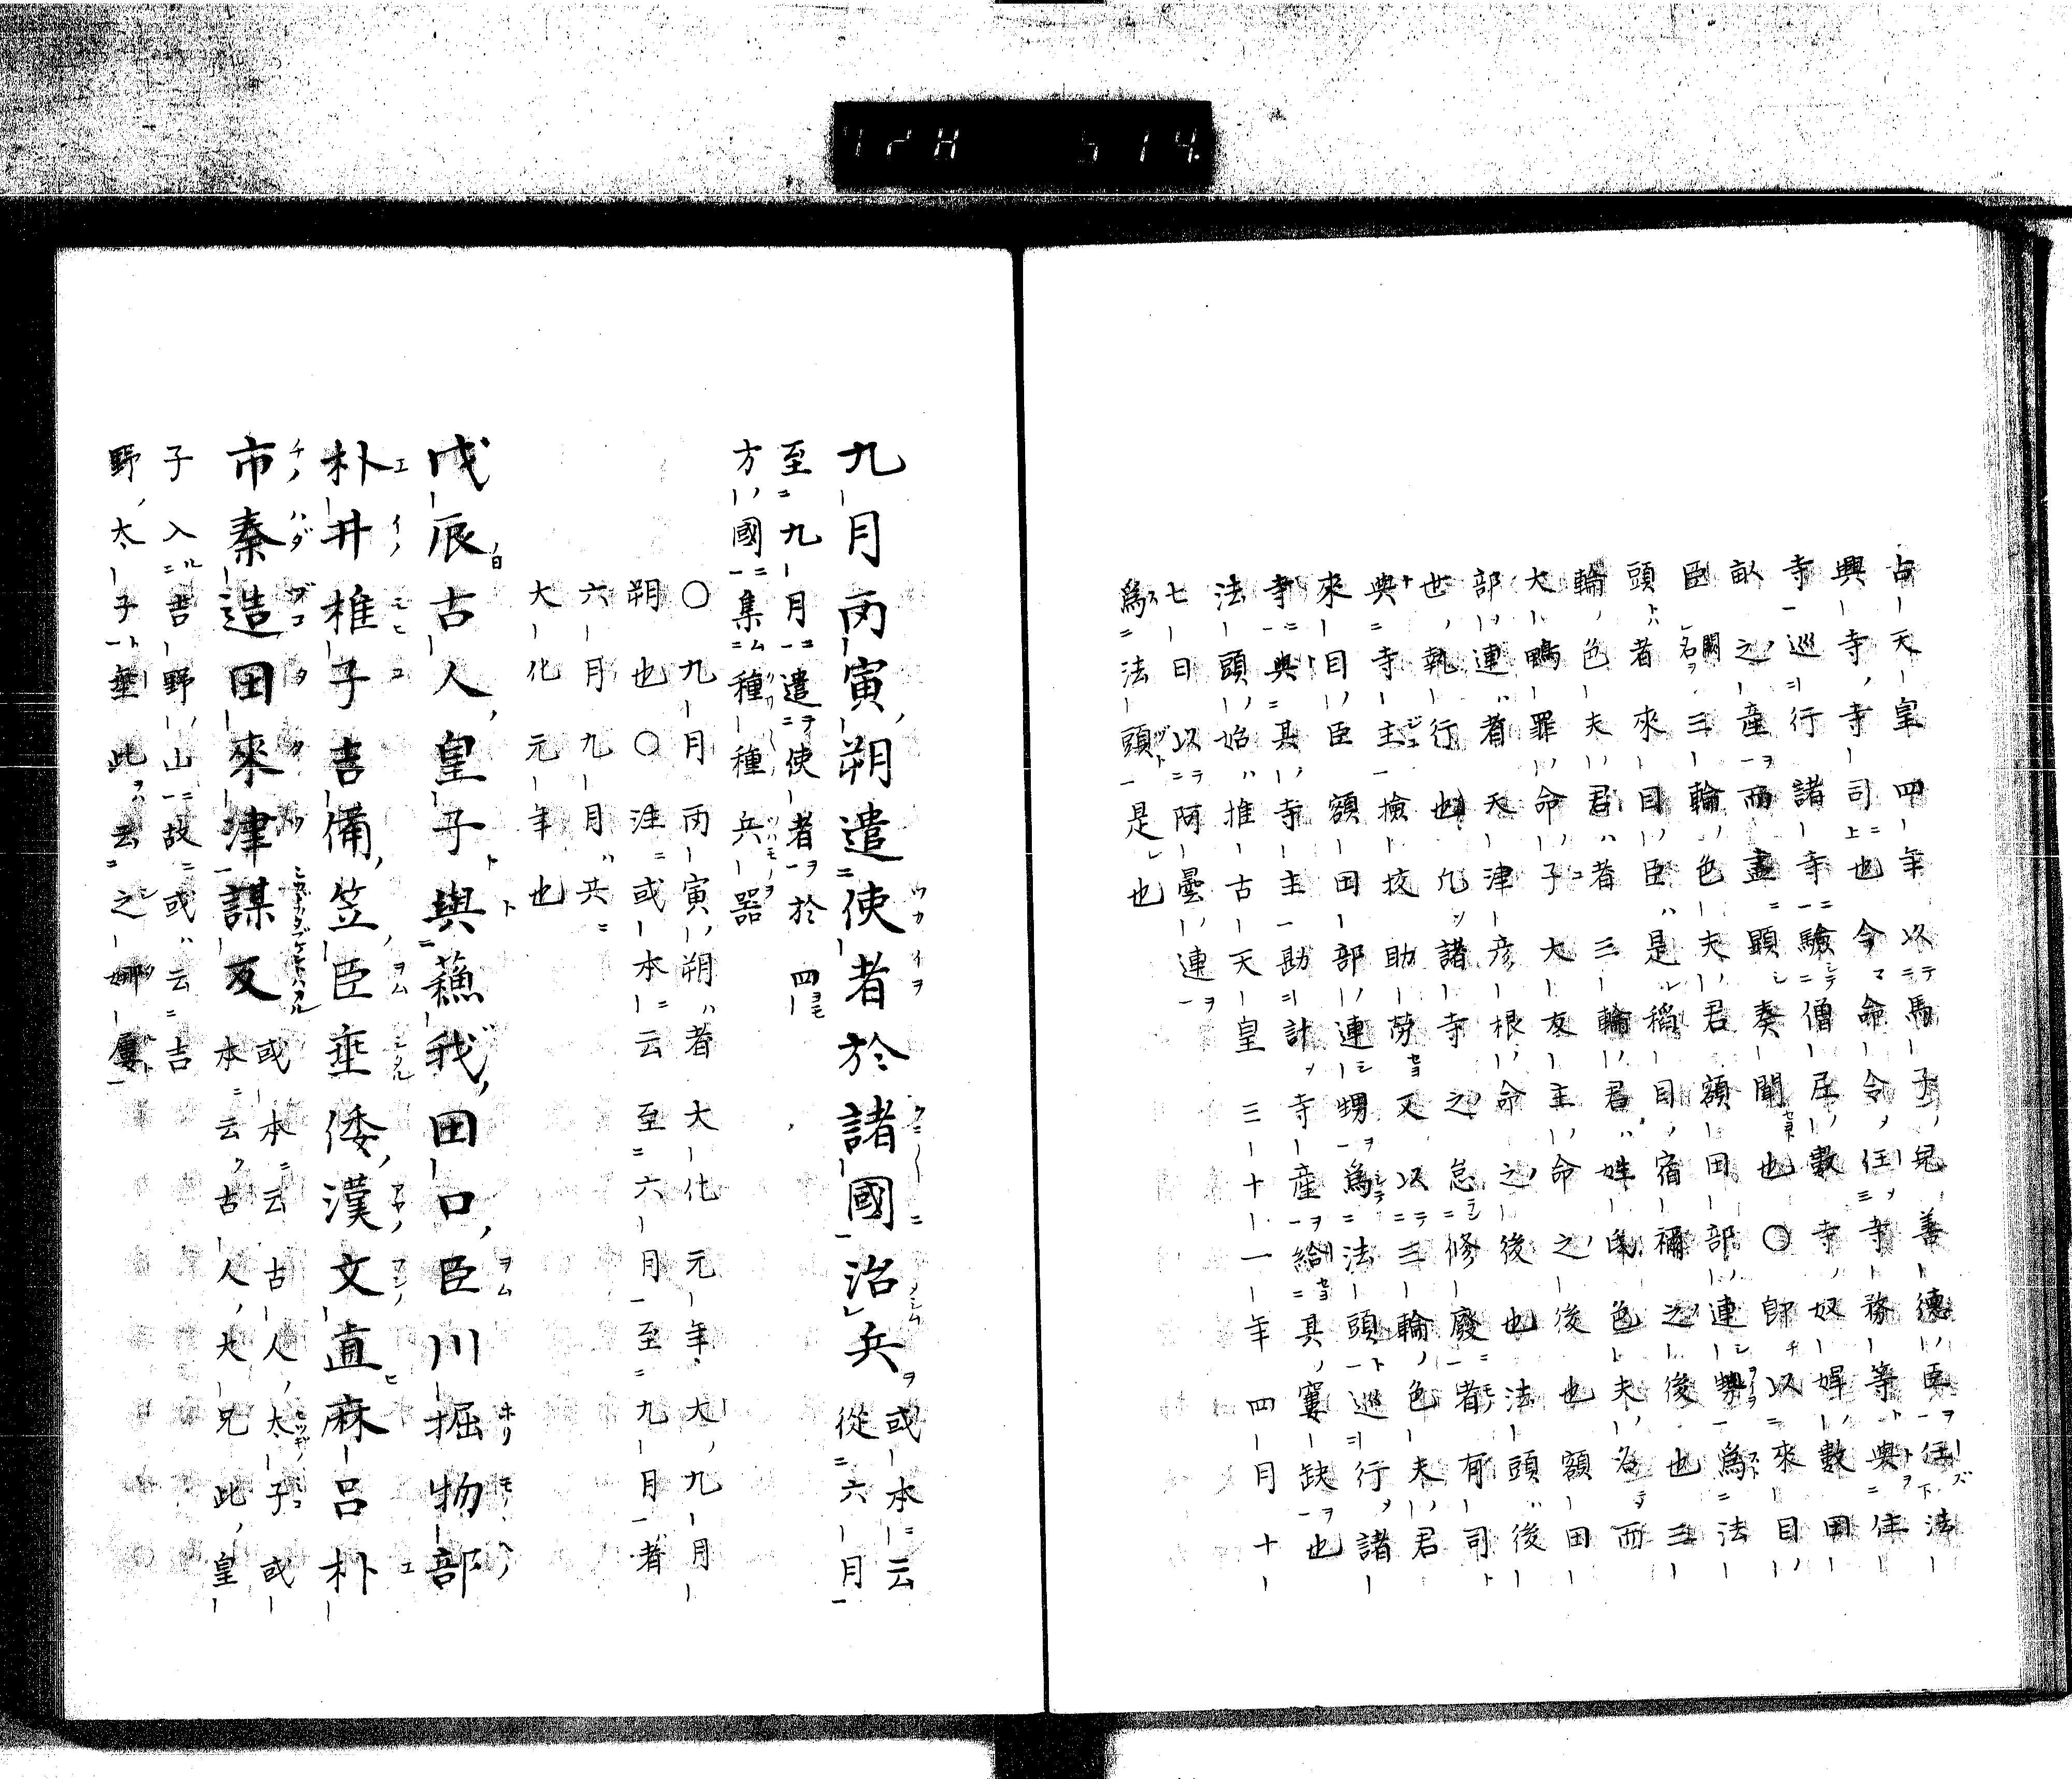 古天皇四年以馬子兒善德臣任法
興寺寺司也 令命令任寺務等與住
寺巡行諸寺驗僧尼數寺奴婢數田
畝之産而盡顯奏聞也〇即以來目
臣闕名三輪色夫君額田部連與爲法
頭者來目臣ハ是稻目宿禰之後也三
輪色夫君者三輪君ハ姓氏色夫名而
大鴨罪命子大友主命之後也額田
部連者天津彦根命之後也法頭後
世執行也凡諸寺之怠修廢者有司
與寺主檢挍助勞又以三輪色夫君
來目臣額田部連甥爲法頭巡行諸
寺與其寺主勘計寺産給其窶缺也
法頭始推古天皇三十一年四月十
七日以阿曇連
爲法頭是也
九月丙寅朔遣使者於諸國治兵 或本云從六月
至九月遣使者於四
方國集種種兵器
〇九月丙寅朔者大化元年大九月
朔也〇注或本云至六月至九月者
六月九月共
大化元年也
戊辰古人皇子與蘓我田口臣川掘物部
朴井椎子吉備笠臣垂倭漢文直麻呂朴
市秦造田來津謀反 或本云古人太子或本云古人大兄此皇
子入吉野山故或云吉
野太子垂此云之娜屢
72H 514